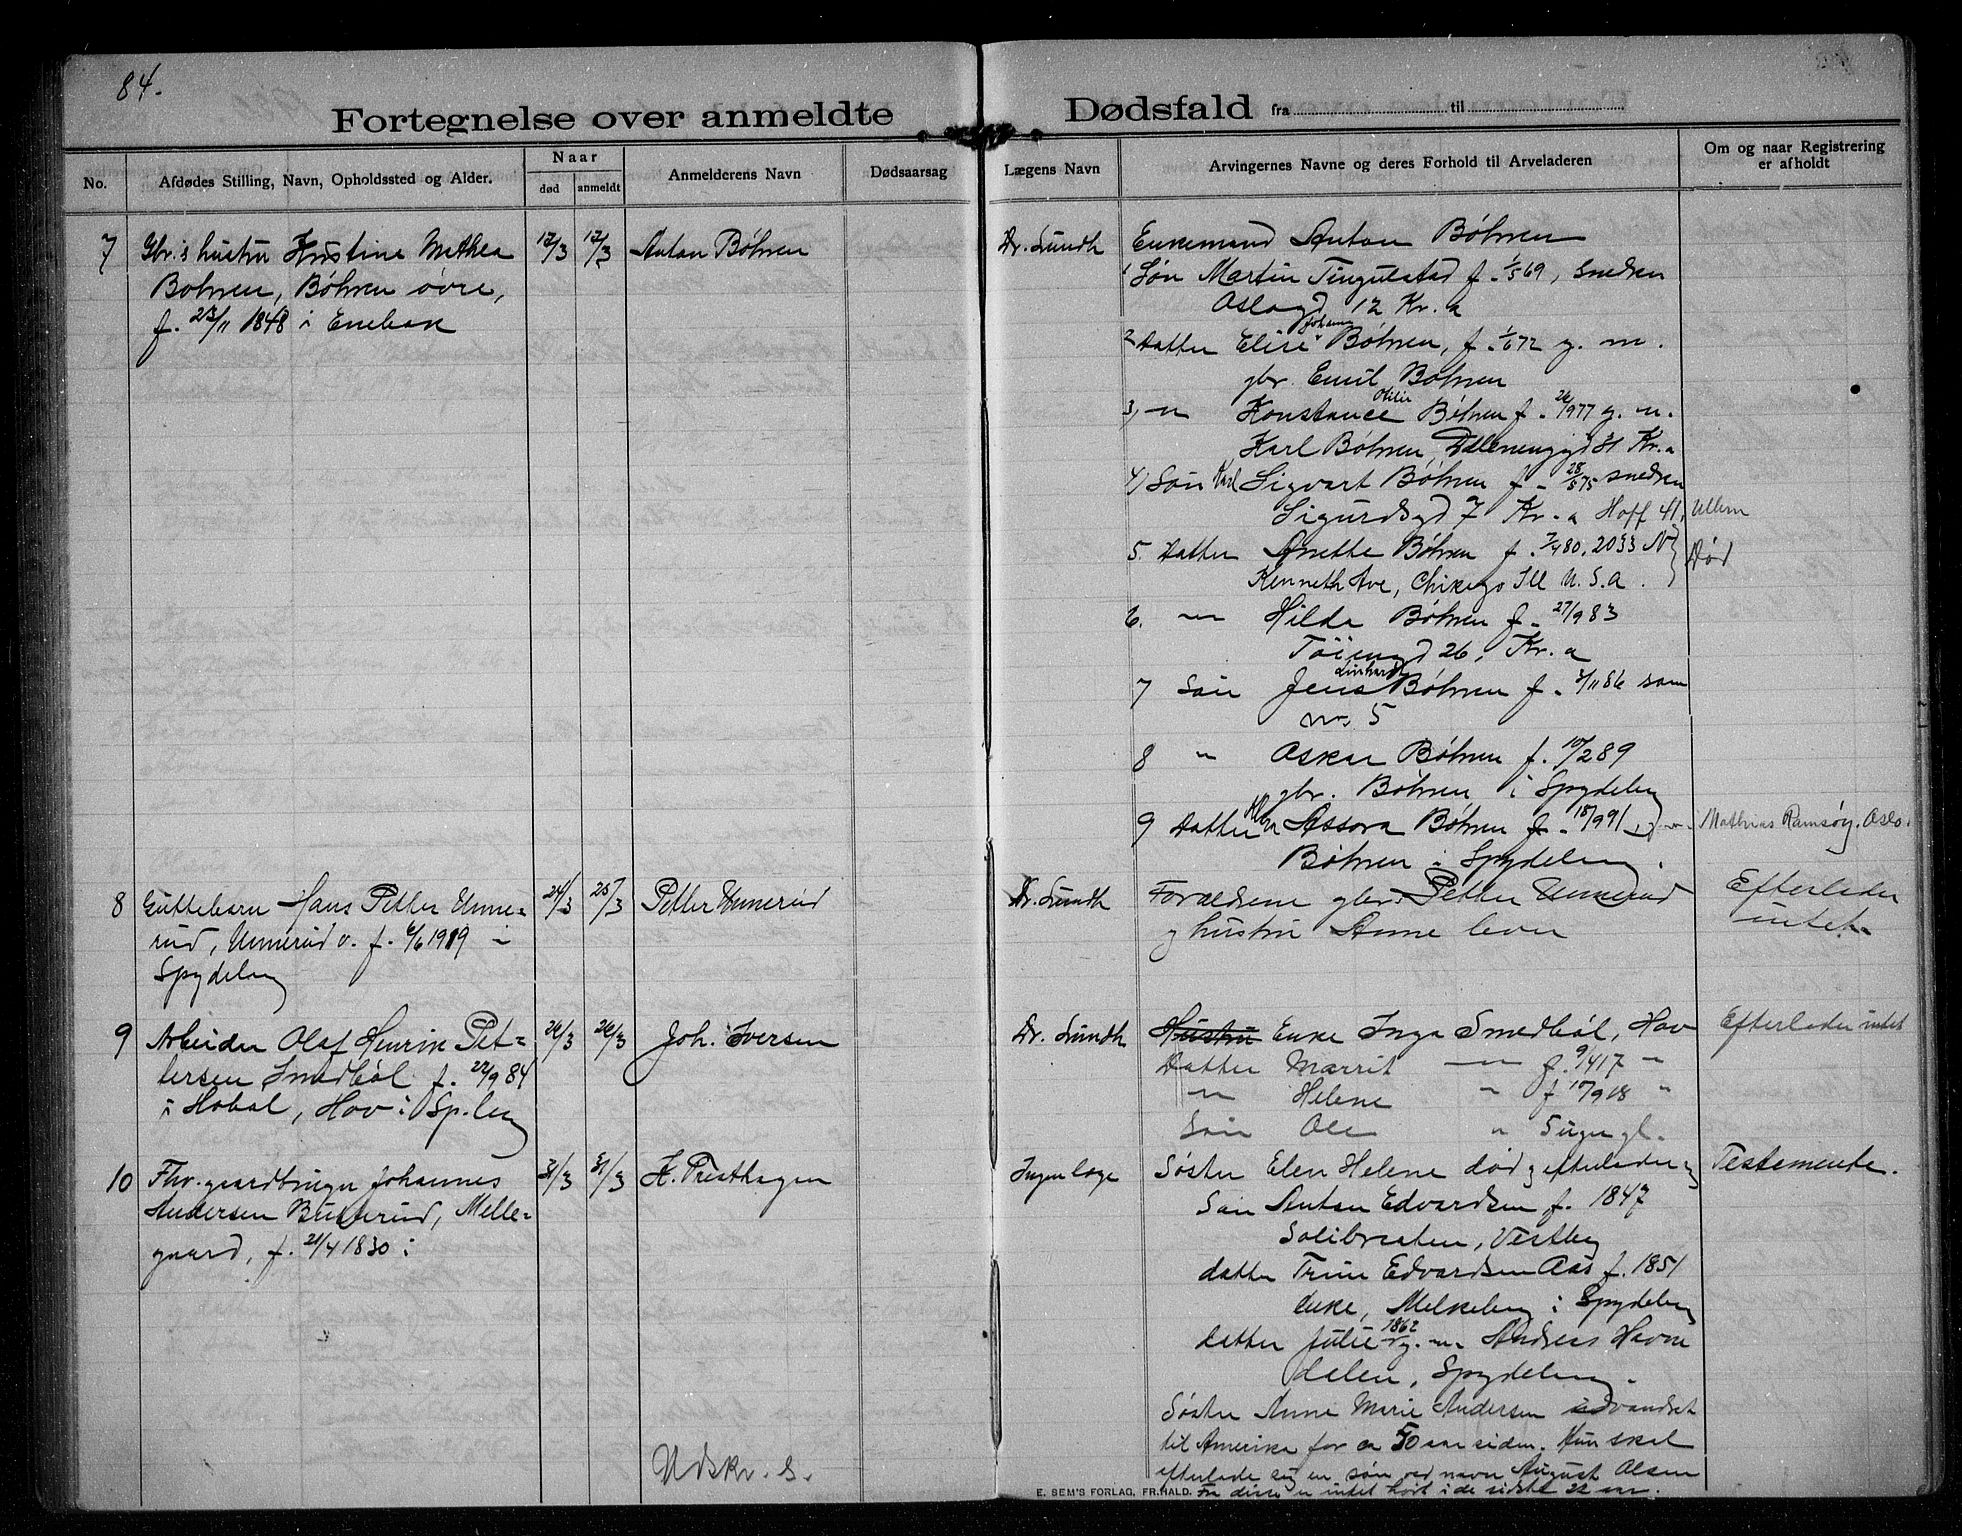 84.
Fortegnelse over anmeldte Dødsfald fra til
No.
Afdødes Stilling, Navn, Opholdssted og Alder.
Naar
død
anmeldt
Anmelderens Navn
Dødsaarsag
Lægens Navn
Arvingernes Navne og deres Forhold til Arveladeren
Om og naar Registrering
er afholdt
7 Gbr.s hustru Kristine Mathea
Bøhnen, Bøhnen øvre,
f. 23/11 1848 i Enebak
12/3 12/3 Anton Bøhnen
Dr. Lundh
Enkemand Anton Bøhnen
1 Søn Martin Tingulstad f. 1/5 69, snedker
Oslogd 12 Kr.a
2 Datter Elise Johanne Bøhnen, f. 1/6 72 g. m.
gbr. Emil Bøhnen
3, -"- Konstance Otilie Bøhnen f. 26/9 77 g. m.
Karl Bøhnen, Dælenenggd 31 Kr.a
4) Søn Karl Sigvart Bøhnen f. 28/5 75 snedker
Sigurdsgd 7 Kr.a Hoff 41, Ullern
5. Datter Anette Bøhnen f. 7/4 80. 2033 N
Kenneth Ave, Chikago Ill U.S.A. Død
6. -"- Hilda Bøhnen f. 27/9 83
Tøiengd 26, Kr.a
7 Søn Jens Linhard Bøhnen f. 3/11 86 som
nr. 5
8 " Oskar Bøhnen f. 10/2 89
gbr. Bøhnen i Spydeberg
9 Datter Assora Bøhnen f. 18/9 91, g.m. Mathias Ramsøy. Oslo.
Bøhnen i Spydeberg.
8 Guttebarn Hans Petter Unne-
rud, Unnerud v. f. 6/6 1919 i
Spydeberg
24/3 25/3 Petter Unnerud
Dr. Lundh
Forældrene gbr. Petter Unnerud
og hustru Anne lever
Efterlader
intet.
9 Arbeider Olaf Henrik Pet-
tersen Smedbøl f. 22/9 84
i Hobøl, Hov i Sp.berg
26/3 26/3 Joh. Iversen
Dr. Lundh
Hustru Enke Inga Smedbøl, Hov
Datter Marrit -"- f. 9/4 17 "
-"- Helene " f. 17/9 18 "
Søn Ole " 5 uger gl.
Efterlader intet
10 Fhv. gaardbruger Johannes
Andersen Butterud, Melle-
gaard, f. 21/4 1830 i
31/3 31/3 H. Presthagen
Ingen læge
Søster Elen Helene død efterlader
Søn Anton Edvardsen f. 1847
Solibraaten, Vestby
datter Trine Edvardsen Aas f. 1851
enke, Melkeberg i Spydeberg
datter Julie 1862 g. m. Andreas Havne
dalen, Spydeberg.
Søster Anne Marie Andersen udvandret
til Amerika for ca 50 aar siden. Hun skal
efterlade sig en søn ved navn August Olsen
Fra disse er intet hørt i de sidste 22 aar.
Testamente.
Udskr. S.
E. SEM'S FORLAG, FR.HALD.